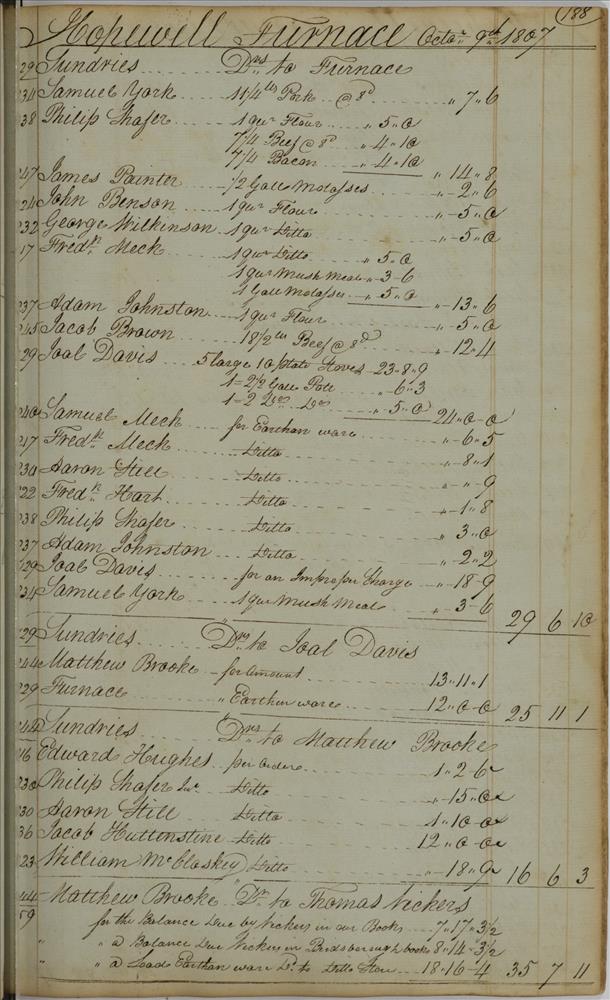 188
Hopewell Furnace Octor. 9th 1807
29 Sundries Drs to Furnace
234 Samuel York 11 1/4 lb Pork @ 8d " 7 " 6
38 Philip Shafer 1 qur Flour " 5 " 0
7 1/4 Beef @ 8d " 4 " 10
7 1/4 Bacon " 4 " 10 " 14 " 8
247 James Painter 1/2 Galls Molasses " 2 " 6
24 John Benson 1 qur Flour " 5 " 0
232 George Wilkinson 1 qur Ditto " 5 " 0
17 Fredk. Meck 1 qur Ditto " 5 " 0
1 qur Mush Meal " 3 - 6
1 Gall Molasses " 5 " 0 " 13 " 6
237 Adam Johnston 1 qur Flour " 5 " 0
245 Jacob Brown 18 1/2 lbs Beef @ 8d " 12 " 4
29 Joal Davis 5 large 10 plate Stoves 23 " 8 " 9
1 = 2 1/2 Galls Pott " 6 " 3
1 - 2 Do. Do. " 5 " 0 24 " 0 - 0
240 Samuel Meck for Earthan ware " 6 " 5
217 Fredk Meck Ditto " 8 " 1
230 Aaron Still Ditto " " 9
222 Fredk Hart Ditto " 1 " 8
238 Philip Shafer Ditto " 3 " 0
237 Adam Johnston Ditto " 2 " 2
29 Joal Davis for an Improper Charge " 18 - 9
234 Samuel York 1 qur Mush Meal " 3 - 6 29 6 10
29 Sundries Drs to Joal Davis
244 Matthew Brooke for amount 13 " 11 " 1
229 Furnace " Earthen ware 12 " 0 - 0 25 11 1
244 Sundries Drs to Matthew Brooke
16 Edward Hughes per order 1 " 2 6
230 Philip Shafer Jur. Ditto " 15 " 0
230 Aaron Still Ditto 1 " 10 " 0
36 Jacob Huttenstine Ditto 12 " 0 " 0
23 William McClaskey Ditto " 18 " 9 16 6 3
244 Matthew Brooke Dr. to Thomas Vickers
59 for the Balance Due by Vickers in our Books 7 " 17 " 3 1/2
" " a Balance Due Vickers in Birdsborough books 8 " 14 " 3 1/2
" " a Load Earthan ware Dd. to Ditto 18 " 16 - 4 35 7 11